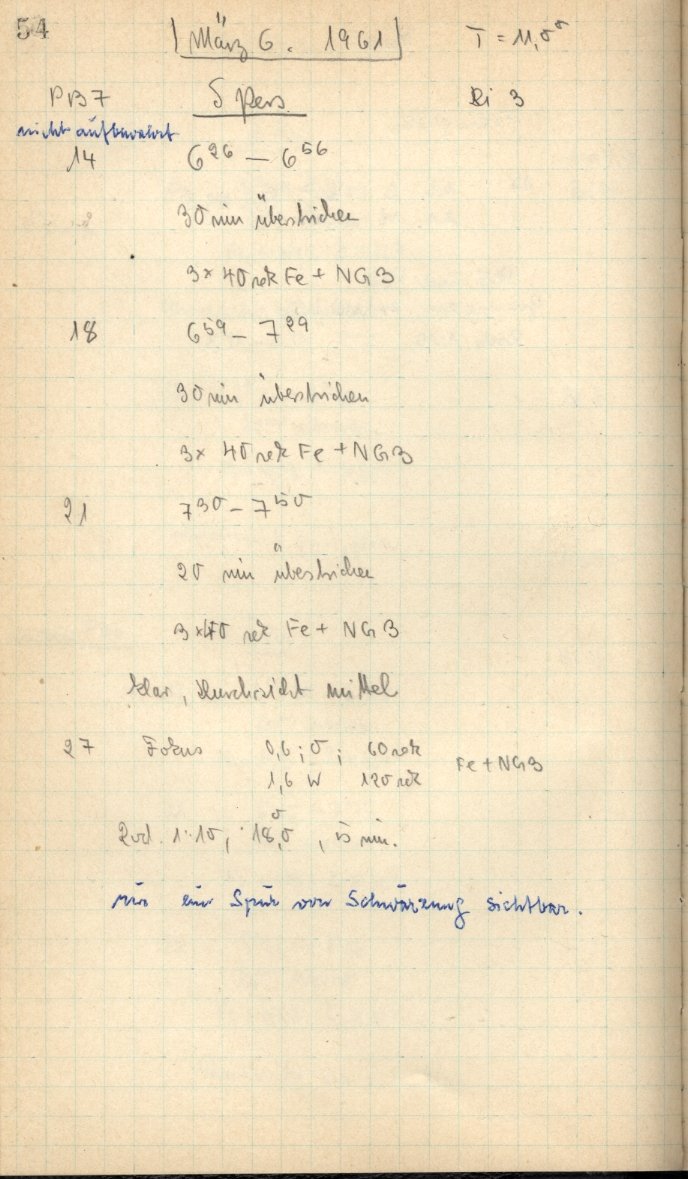 54
März 6. 1961 T = 11,0°
PB7 δ Pers. Ri 3
nicht aufbewahrt
14 6²⁶ – 6⁵⁶
30 min überstrichen
3 × 40 sek Fe + NG3
18 6⁵⁹ – 7²⁹
30 min überstrichen
3 × 40 sek Fe + NG3
21 7³⁰ – 7⁵⁰
20 min überstrichen
3 × 40 sek Fe + NG3
klar, Durchsicht mittel
27 Fokus 0,6 ; 0 ; 60 sek Fe + NG3
1,6 W 120 sek
Rod. 1:10, 18,0°, 5 min.
nur eine Spur von Schwärzung sichtbar.